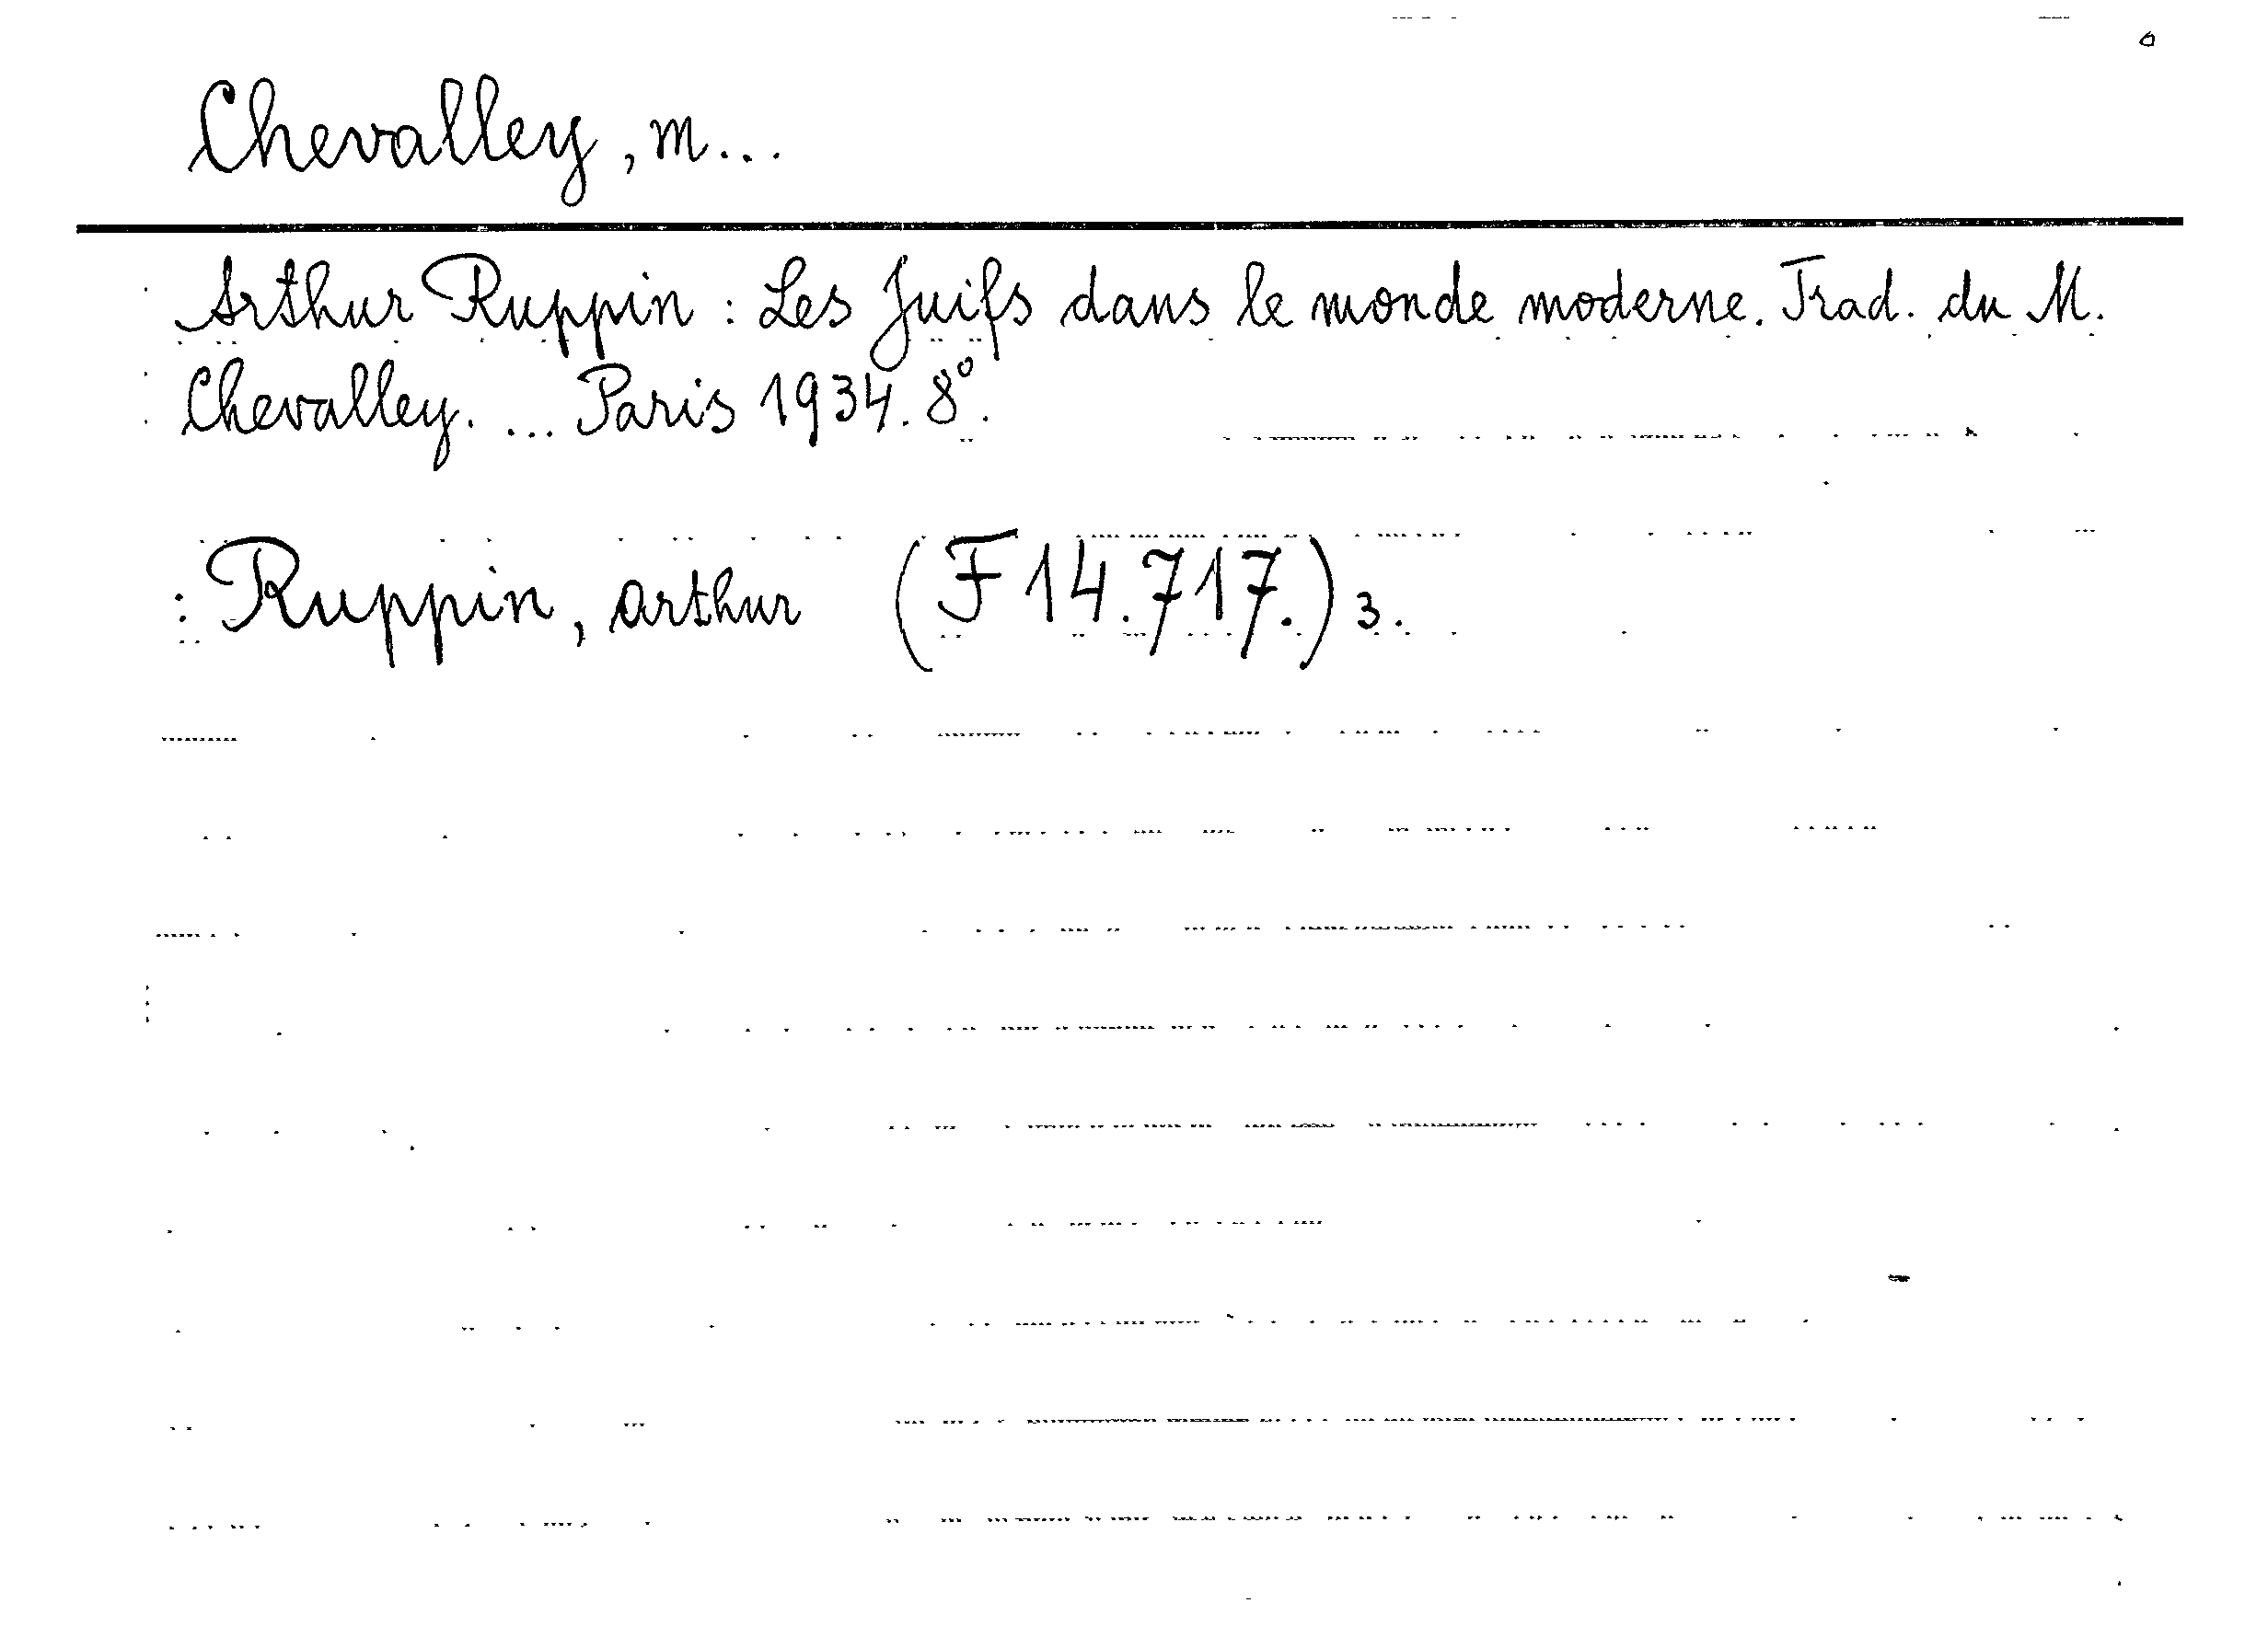 Chevalley, M...
Arthur Ruppin : Les Juifs dans le monde moderne. Trad. du M.
Chevalley. ... Paris 1934. 8°.
: Ruppin, Arthur (F 14.717.) 3.